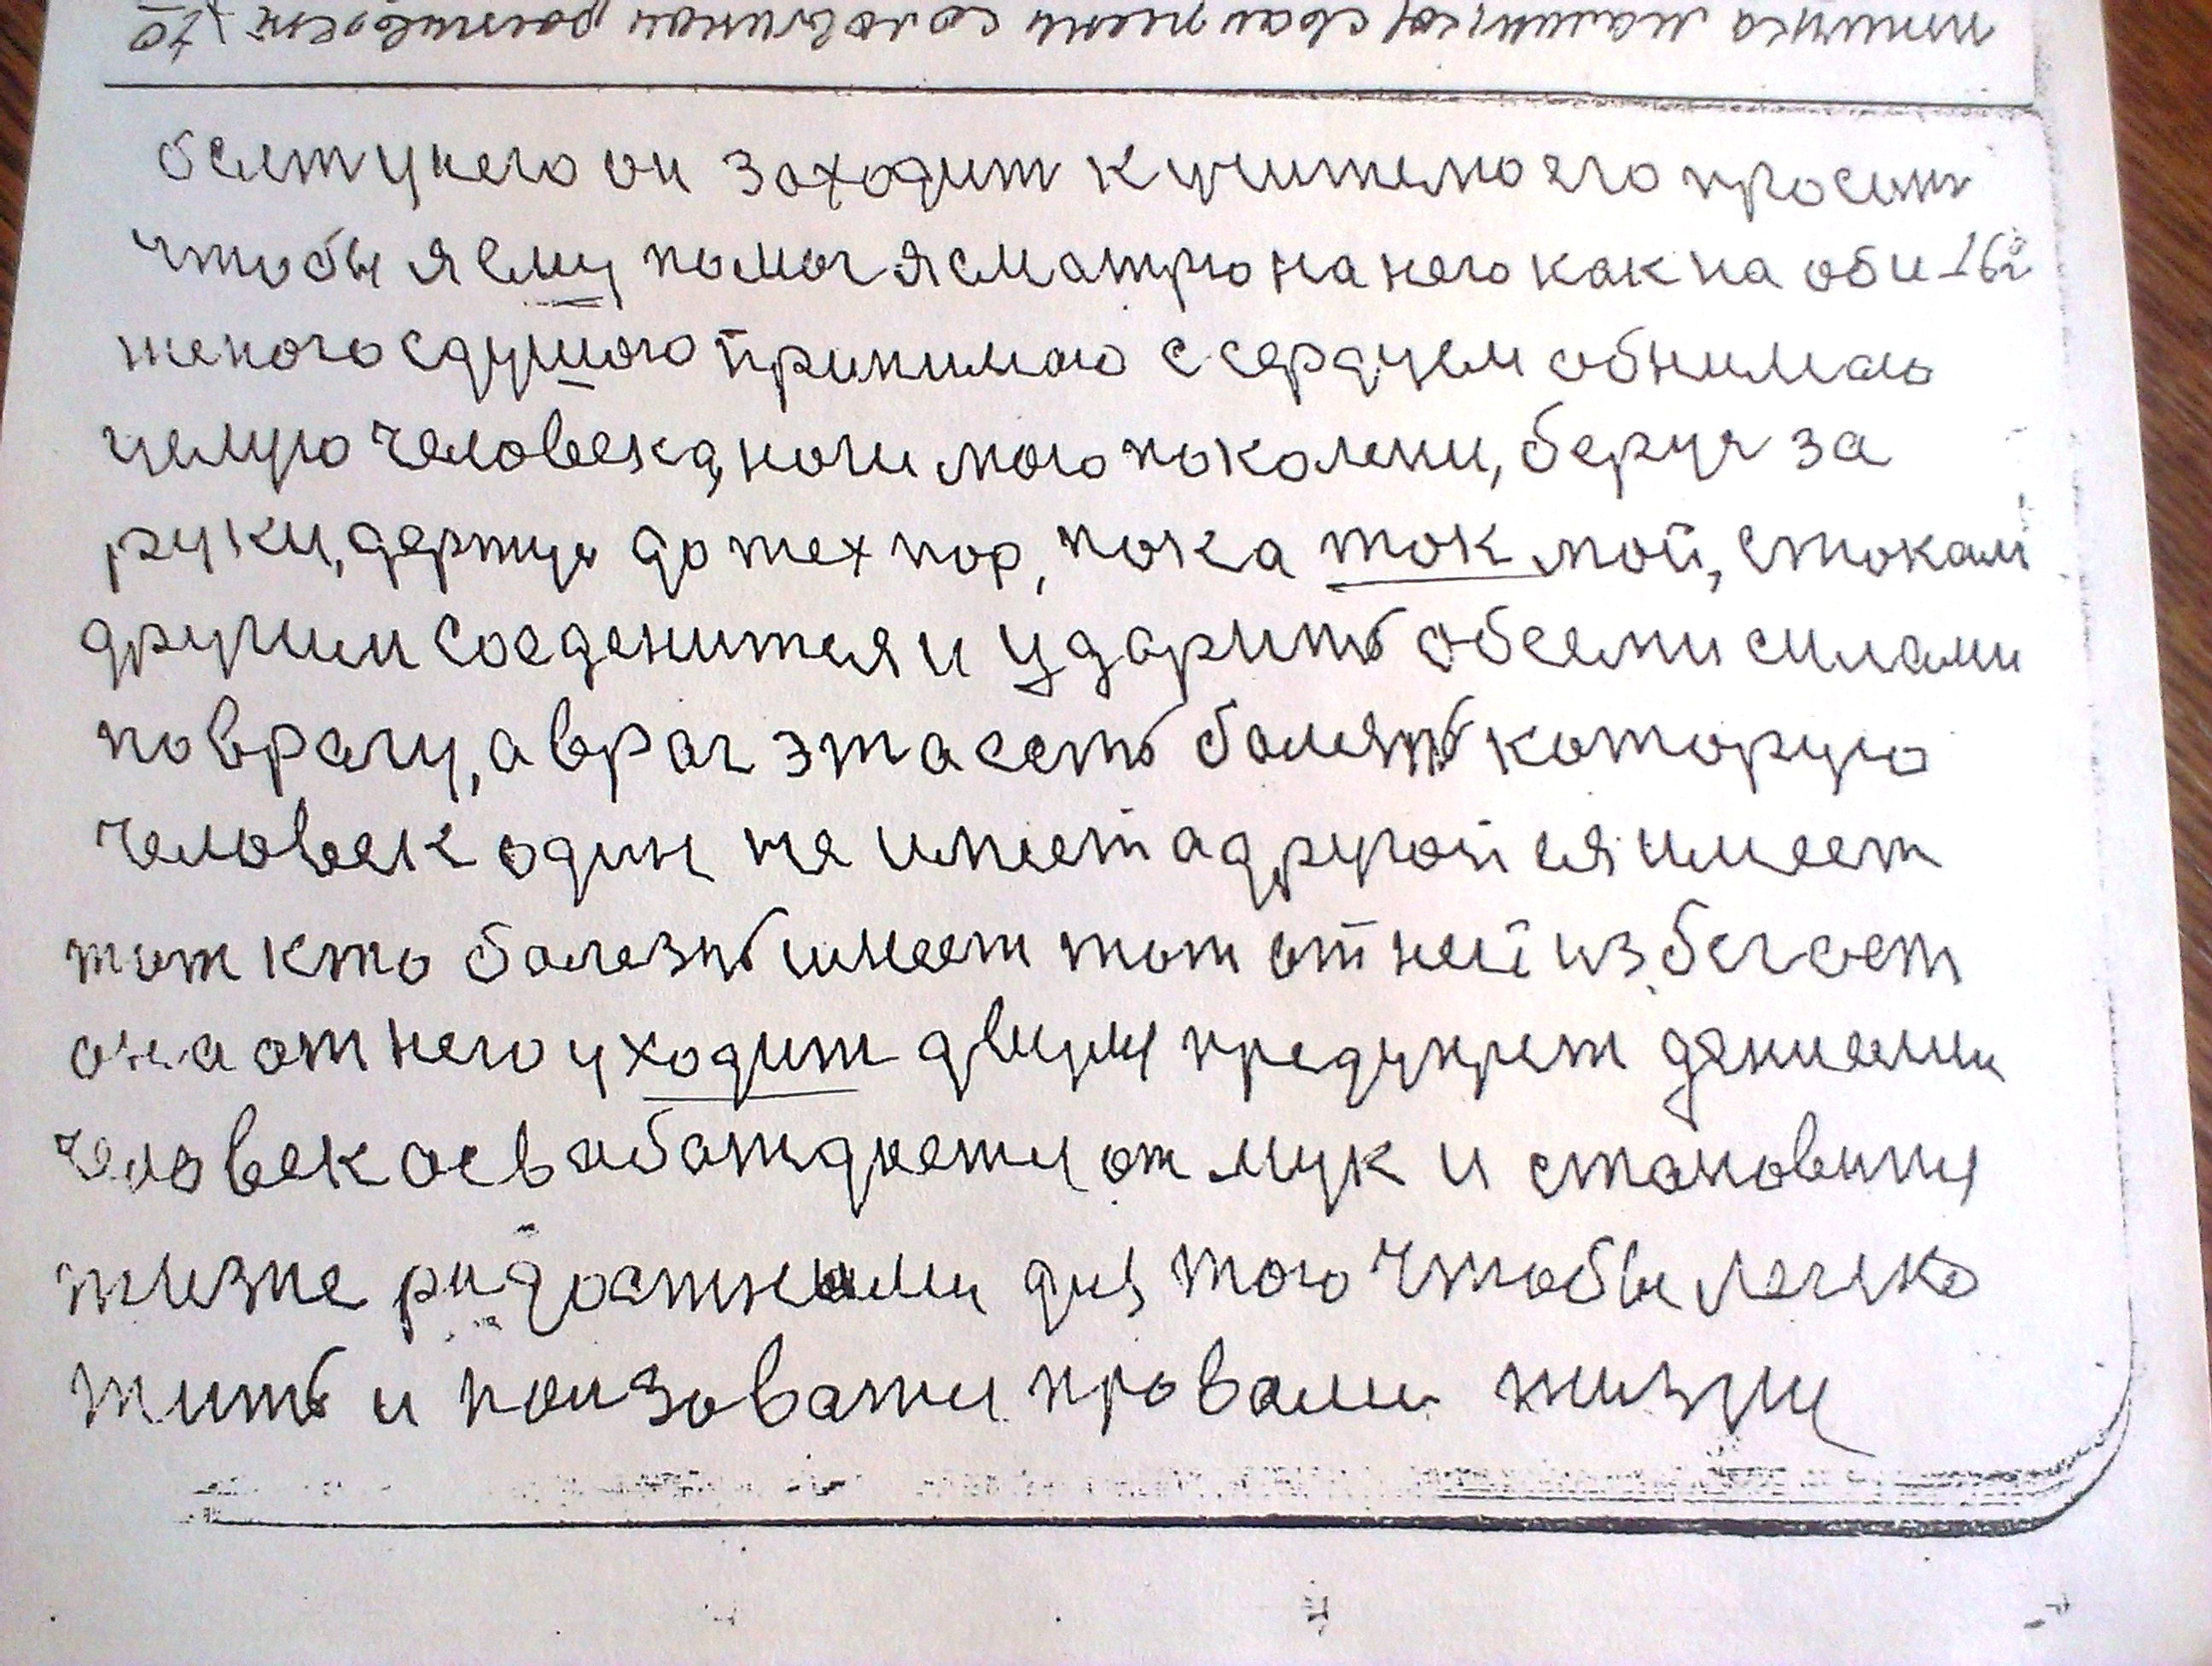 болит у него он заходит к учителю его просит
чтобы я ему помог я сматрю на него как на оби 16
женого сдушою принимаю с сердцем обнимаю
целую человека, ноги мою поколени, беруч за
руки, держус до тех пор, пока ток мой, стокам
другим соеденится и ударить обееми силами
поврагу, а враг эта есть
которую
человек один не имеет а другой ея имеет
тот кто болезнь имеет тот от ней избегает
она от него уходит двумя предукреждениеми
человек асвабаждается от мук и становится
жизне радостными для того чтобы легко
жить и ползоватся правами жизни